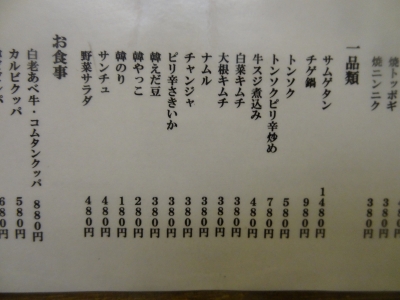 焼トッポギ 380
焼ニンニク 380円
一品類
サムゲタン 1480円
チゲ鍋 980円
トンソク 580円
トンソクピリ辛炒め 780円
牛スジ煮込み 480円
白菜キムチ 380円
大根キムチ 380円
ナムル 380円
チャンジャ 380円
ピリ辛さきいか 380円
韓えだ豆 380円
韓やっこ 280円
韓のり 180円
サンチュ 480円
野菜サラダ 480円
お食事
白老あべ牛・コムタンクッパ 880円
カルビクッパ 580円
680円